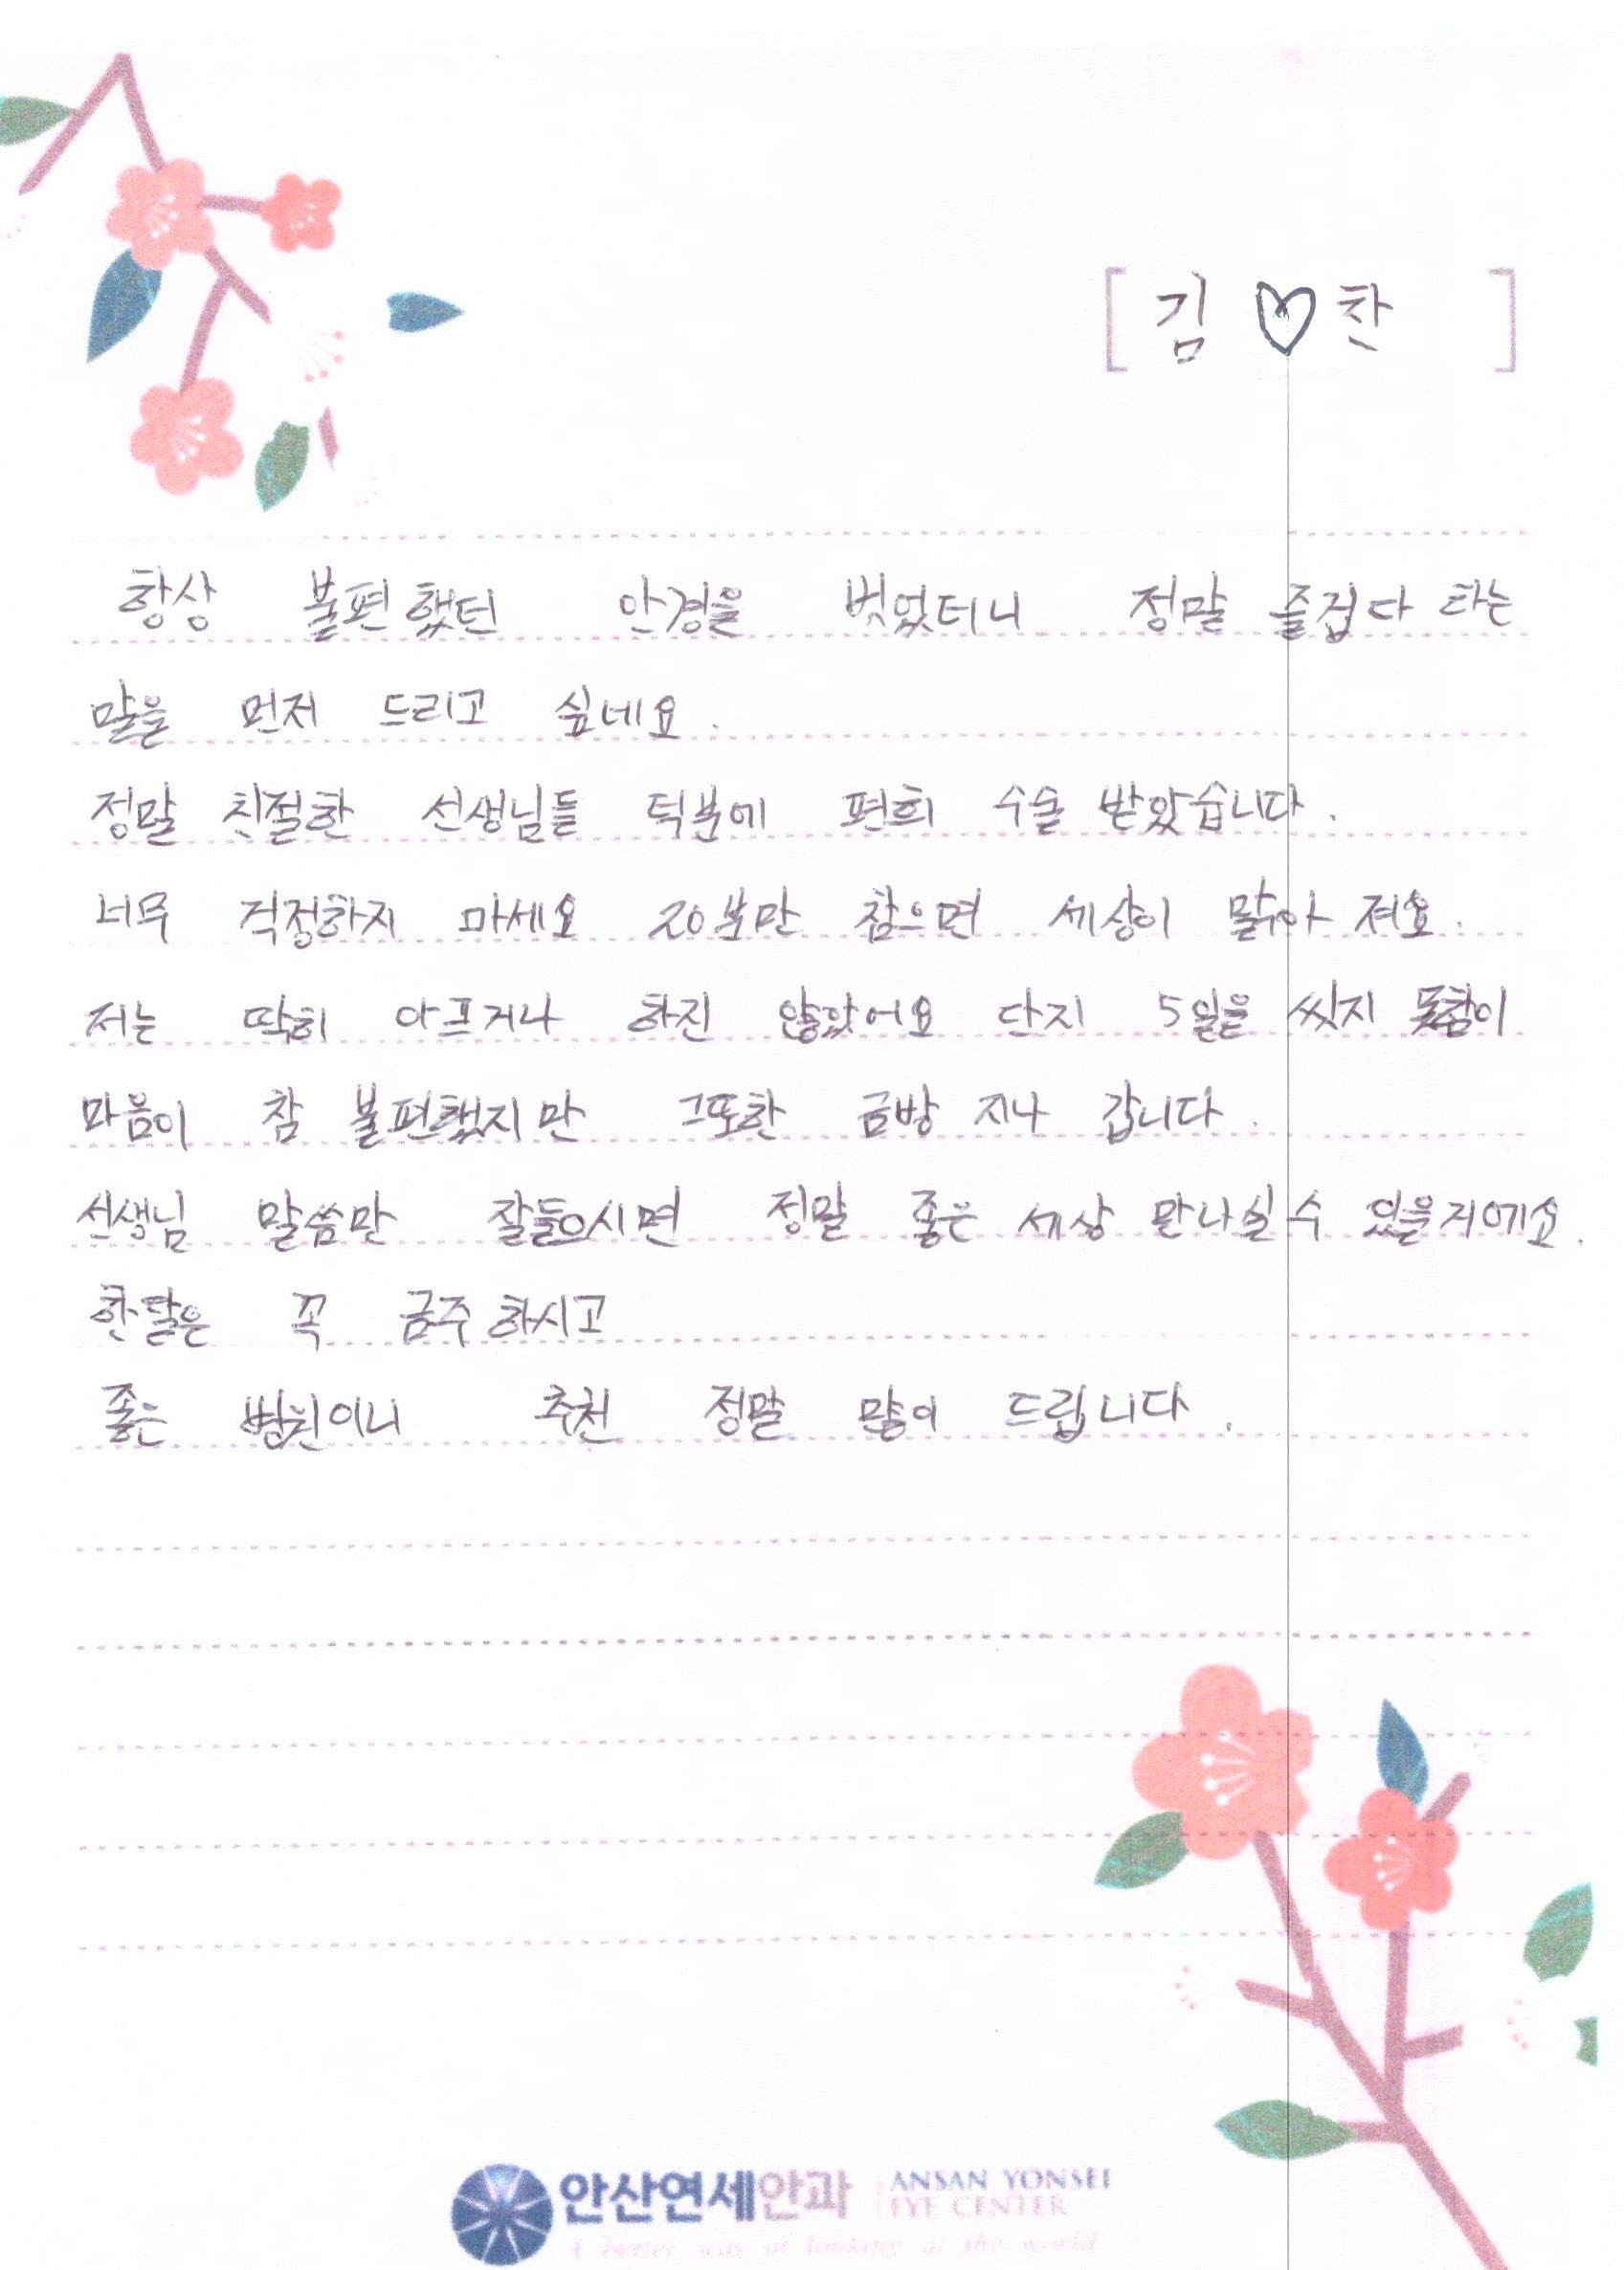 [ 김 ♡ 찬 ]
항상 불편했던 안경을 벗었더니 정말 즐겁다 라는
말을 먼저 드리고 싶네요.
정말 친절한 선생님들 덕분에 편희 수술 받았습니다.
너무 걱정하지 마세요 20분만 참으면 세상이 맑아 져요.
저는 딱히 아프거나 하진 않았어요 단지 5일을 씻지 못함이
마음이 참 불편했지만 그또한 금방 지나 갑니다.
선생님 말씀만 잘들으시면 정말 좋은 세상 만나실 수 있을거에요.
한달은 꼭 금주 하시고
좋은 병원이니 추천 정말 많이 드립니다.
안산연세안과 ANSAN YONSEI
EYE CENTER
A better way of looking at the world